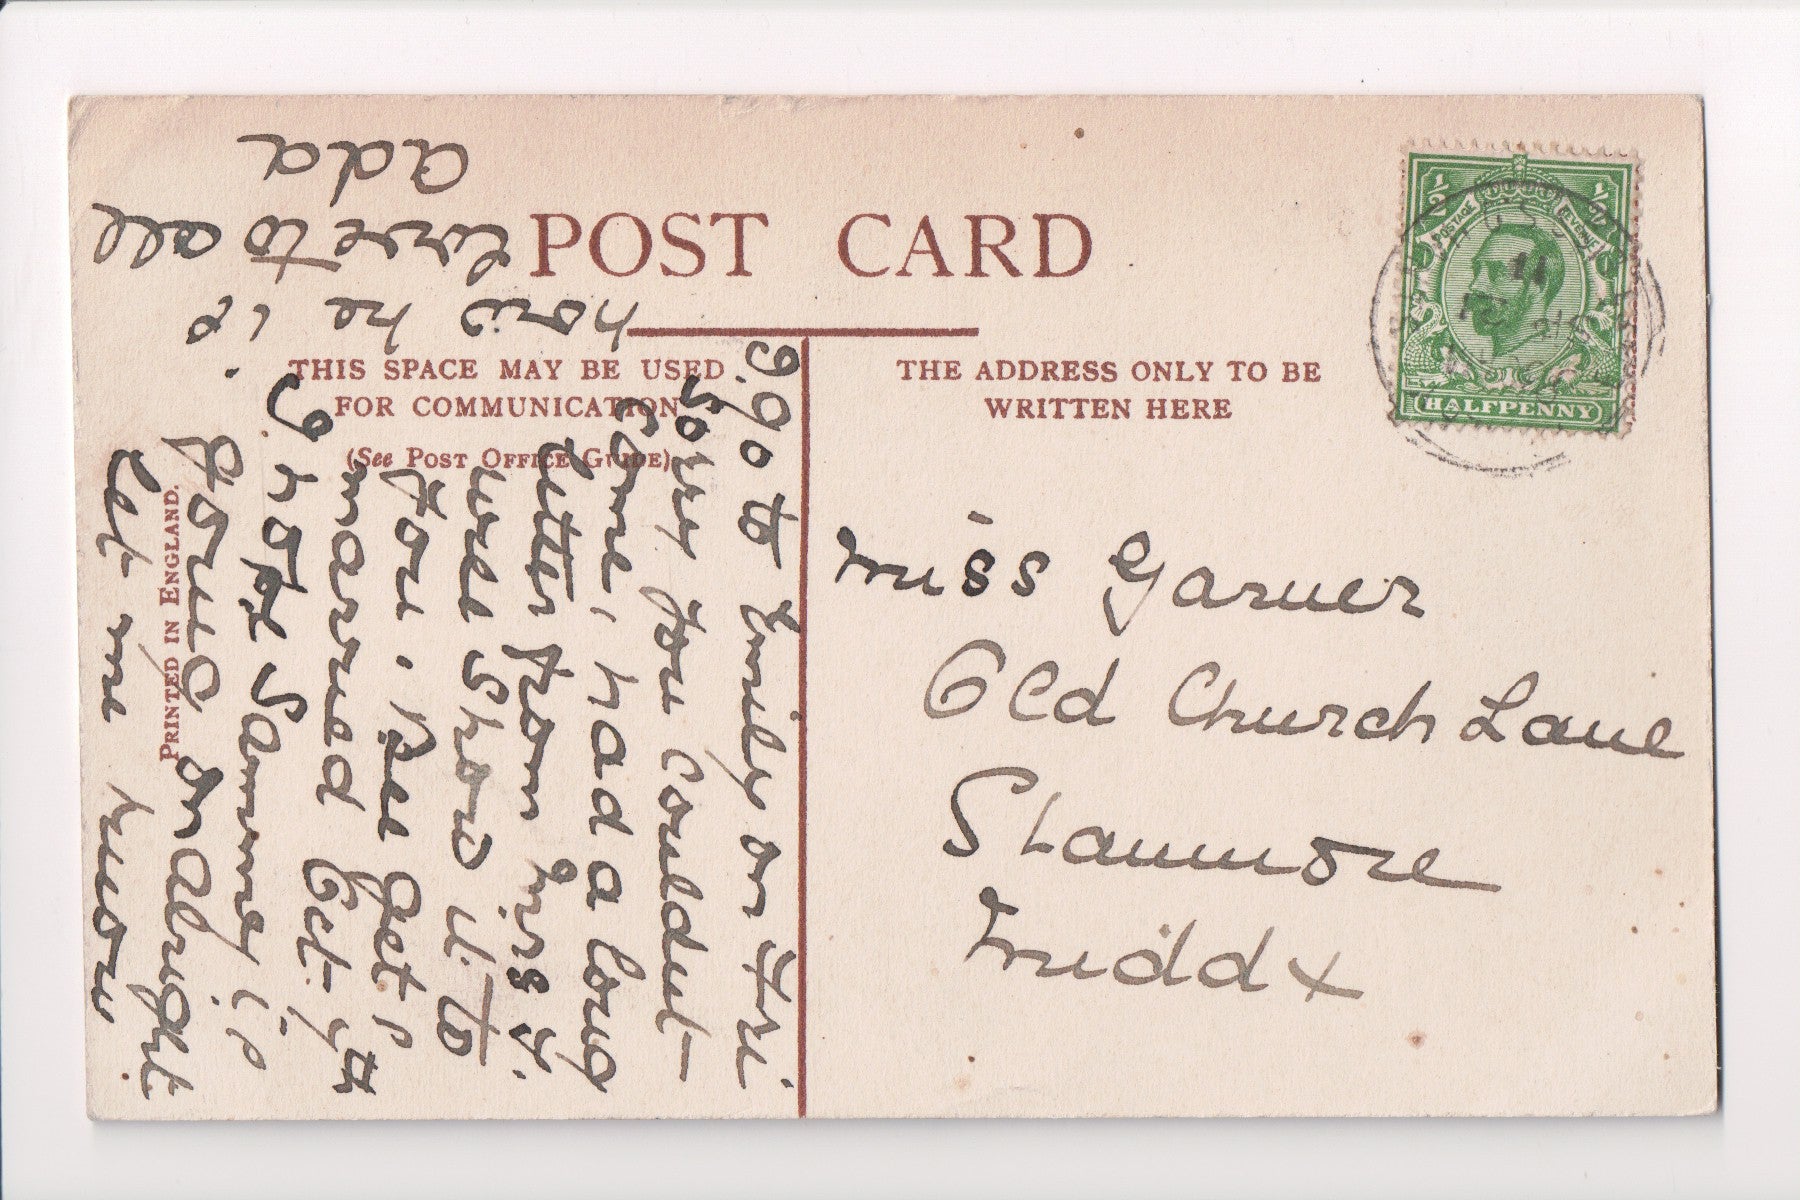 POST CARD
THIS SPACE MAY BE USED
FOR COMMUNICATION
(See POST OFFICE GUIDE)
THE ADDRESS ONLY TO BE
WRITTEN HERE
PRINTED IN ENGLAND.
½ ½
POSTAGE REVENUE
HALFPENNY
Miss Garner
Old Church Lane
Stanmore
Middx
I go to Emily on Fri
Sorry you couldnt
Come, had a long
letter from Mrs Y.
will show it to
you. Bee gets
married Oct. 7th
I hope Sammey is
going on alright
Let me know
how he is.
Love to all
Ada